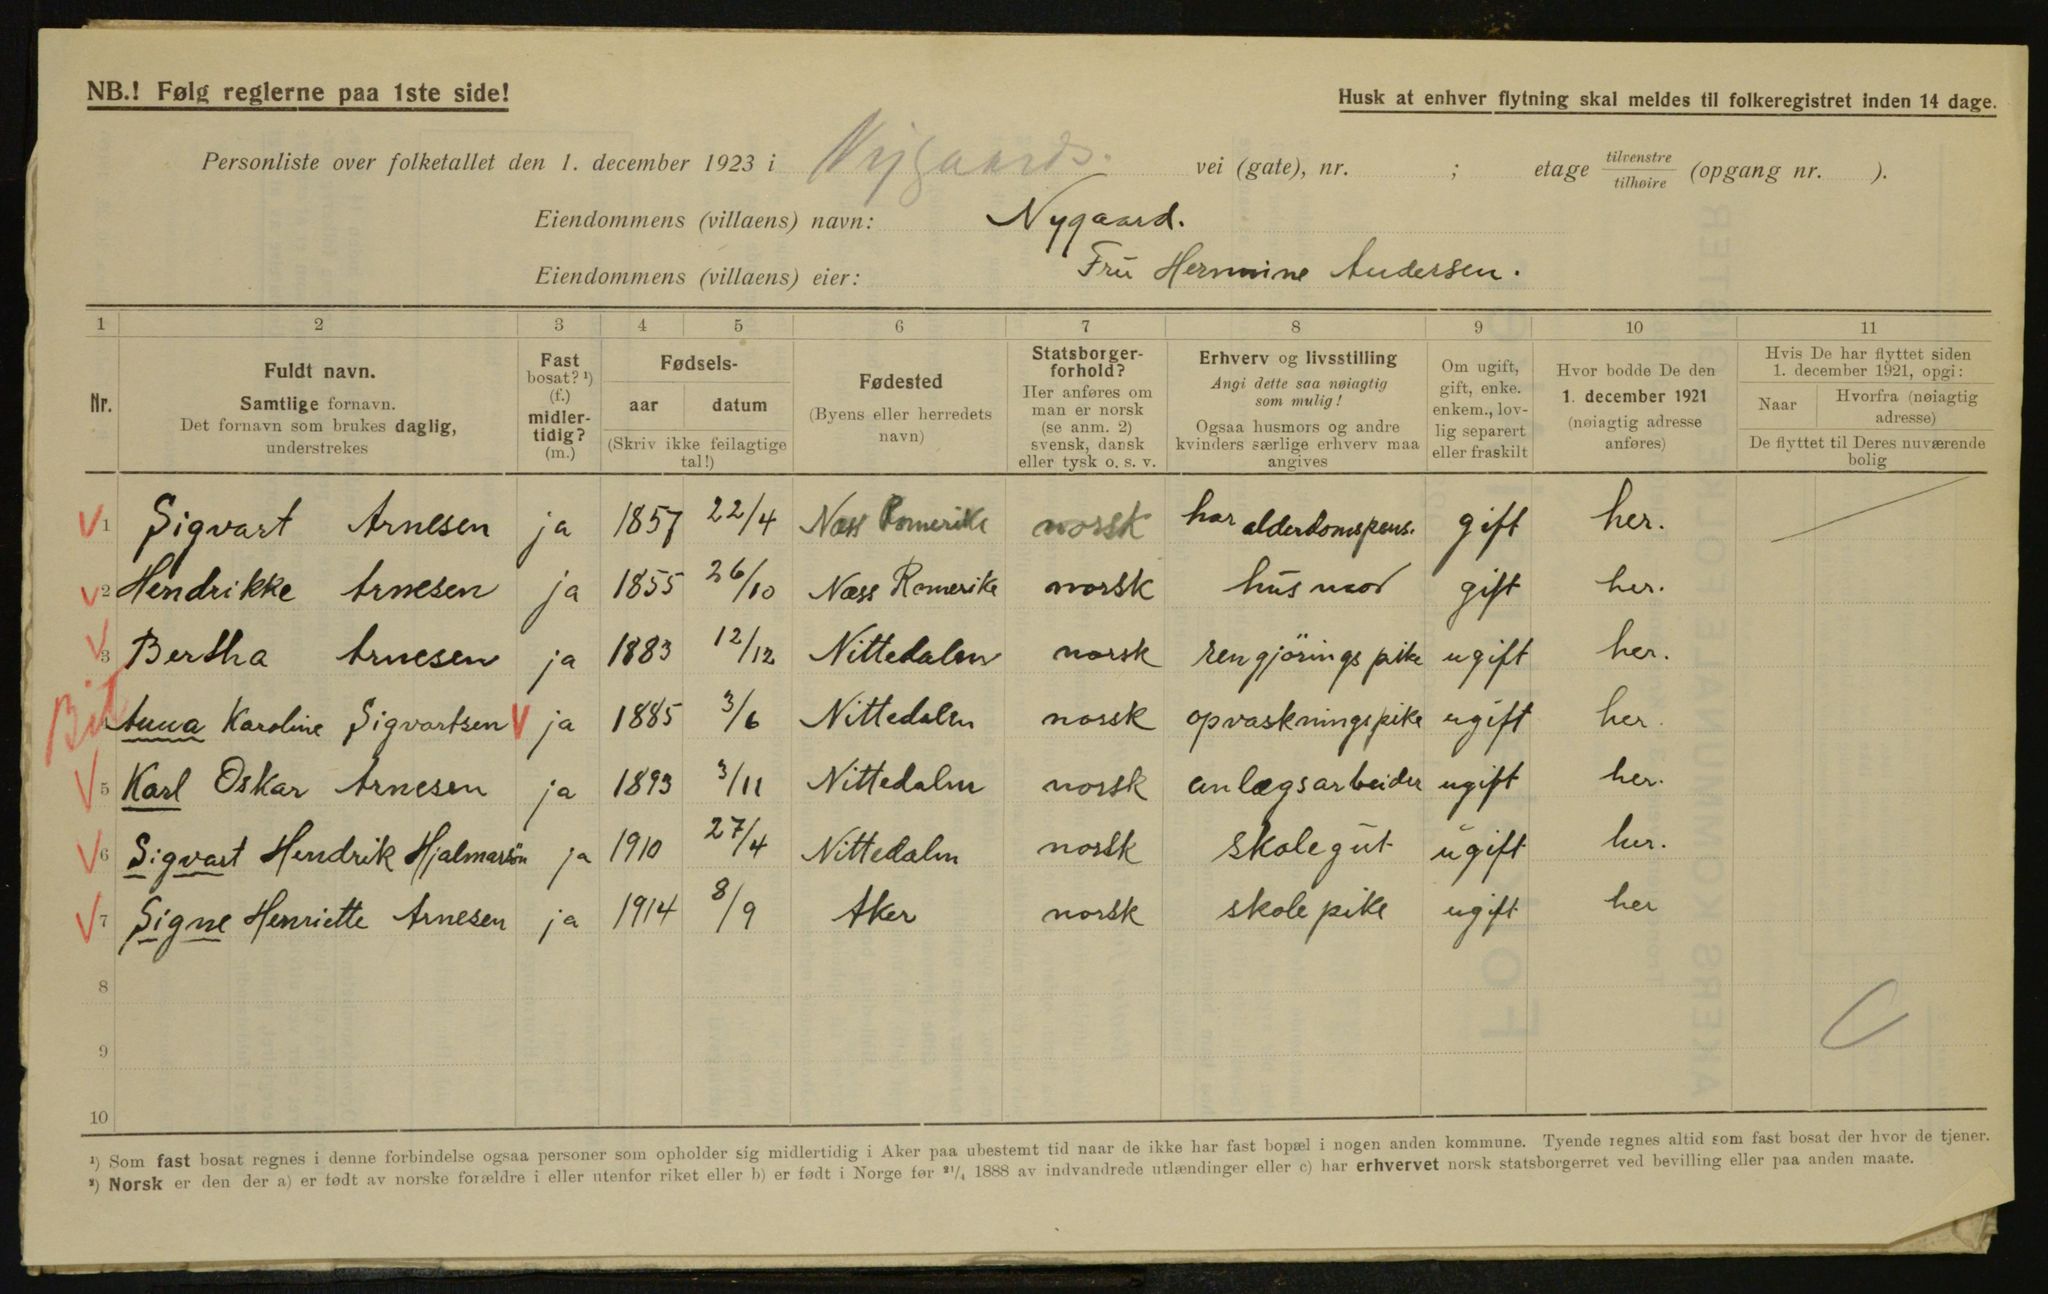 NB.! Følg reglerne paa 1ste side!
Husk at enhver flytning skal meldes til folkeregistret inden 14 dage.
Personliste over folketallet den 1. december 1923 i Nygaards. vei (gate), nr. ; etage tilvenstre tilhøire (opgang nr. ).
Eiendommens (villaens) navn: Nygaard.
Eiendommens (villaens) eier: Fru Hermine Andersen.
1 2 3 4 5 6 7 8 9 10 11
Nr.
Fuldt navn.
Samtlige fornavn.
Det fornavn som brukes daglig,
understrekes
Fast
bosat? ¹)
(f.)
midler-
tidig?
(m.)
Fødsels-
aar datum
(Skriv ikke feilagtige
tal!)
Fødested
(Byens eller herredets
navn)
Statsborger-
forhold?
Her anføres om
man er norsk
(se anm. 2)
svensk, dansk
eller tysk o. s. v.
Erhverv og livsstilling
Angi dette saa nøiagtig
som mulig!
Ogsaa husmors og andre
kvinders særlige erhverv maa
angives
Om ugift,
gift, enke.
enkem., lov-
lig separert
eller fraskilt
Hvor bodde De den
1. december 1921
(nøiagtig adresse
anføres)
Hvis De har flyttet siden
1. december 1921, opgi:
Naar Hvorfra (nøiagtig
adresse)
De flyttet til Deres nuværende
bolig
1 Sigvart Arnesen ja 1857 22/4 Næss Romerike norsk har alderdomspens. gift her.
2 Hendrikke Arnesen ja 1855 26/10 Næss Romerike norsk husmor gift her.
3 Bertha Arnesen ja 1883 12/12 Nittedalen norsk rengjöringspike ugift her.
Anna Karoline Sigvartsen ja 1885 3/6 Nittedalen norsk opvaskningspike ugift her.
5 Karl Oskar Arnesen ja 1893 3/11 Nittedalen norsk anlægsarbeider ugift her.
6 Sigvart Hendrik Hjalmarsön ja 1910 27/4 Nittedalen norsk skolegut ugift her.
7 Signe Henriette Arnesen ja 1914 8/9 Aker norsk skolepike ugift her
8
9
10
¹) Som fast bosat regnes i denne forbindelse ogsaa personer som opholder sig midlertidig i Aker paa ubestemt tid naar de ikke har fast bopæl i nogen anden kommune. Tyende regnes altid som fast bosat der hvor de tjener.
²) Norsk er den der a) er født av norske forældre i eller utenfor riket eller b) er født i Norge før ²¹/₄ 1888 av indvandrede utlændinger eller c) har erhvervet norsk statsborgerret ved bevilling eller paa anden maate.